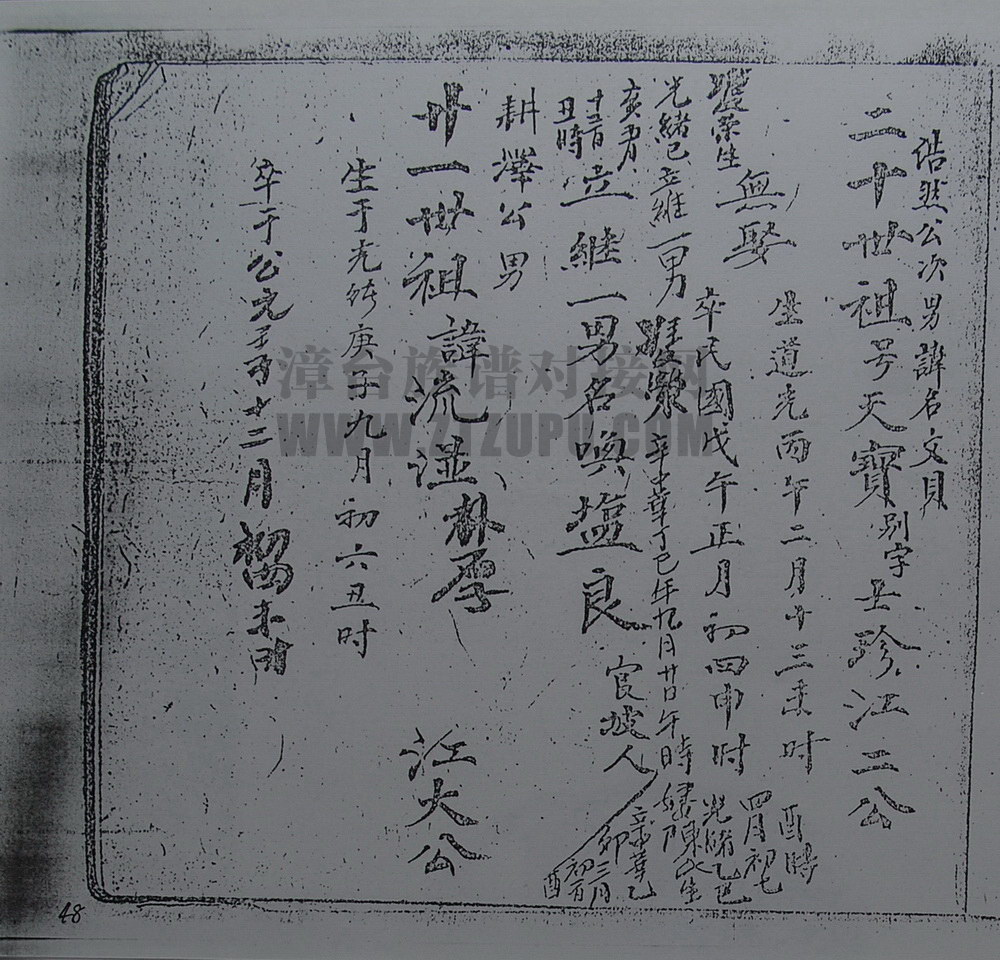 浩然公次男諱名文貝
二十世祖号天寶别字士珍江二公
生道光丙午二月十三未时
無娶
卒民國戊午正月初四申时
榮生
光緒己
亥年
十二月
丑時
立継一男
卒中華丁巳年九月廿日午時
婦陳氏生
光緒乙巳
四月初七
酉時
立継一男名喚塩良
官坡人
卒中華乙
卯三月
初
酉
耕澤公男
廿一世祖諱流湿朴厚
江大公
生于光绪庚子九月初六丑时
卒于公元壬子十二月初四未时
漳台族谱对接网
WWW.ZTZUPU.COM
48